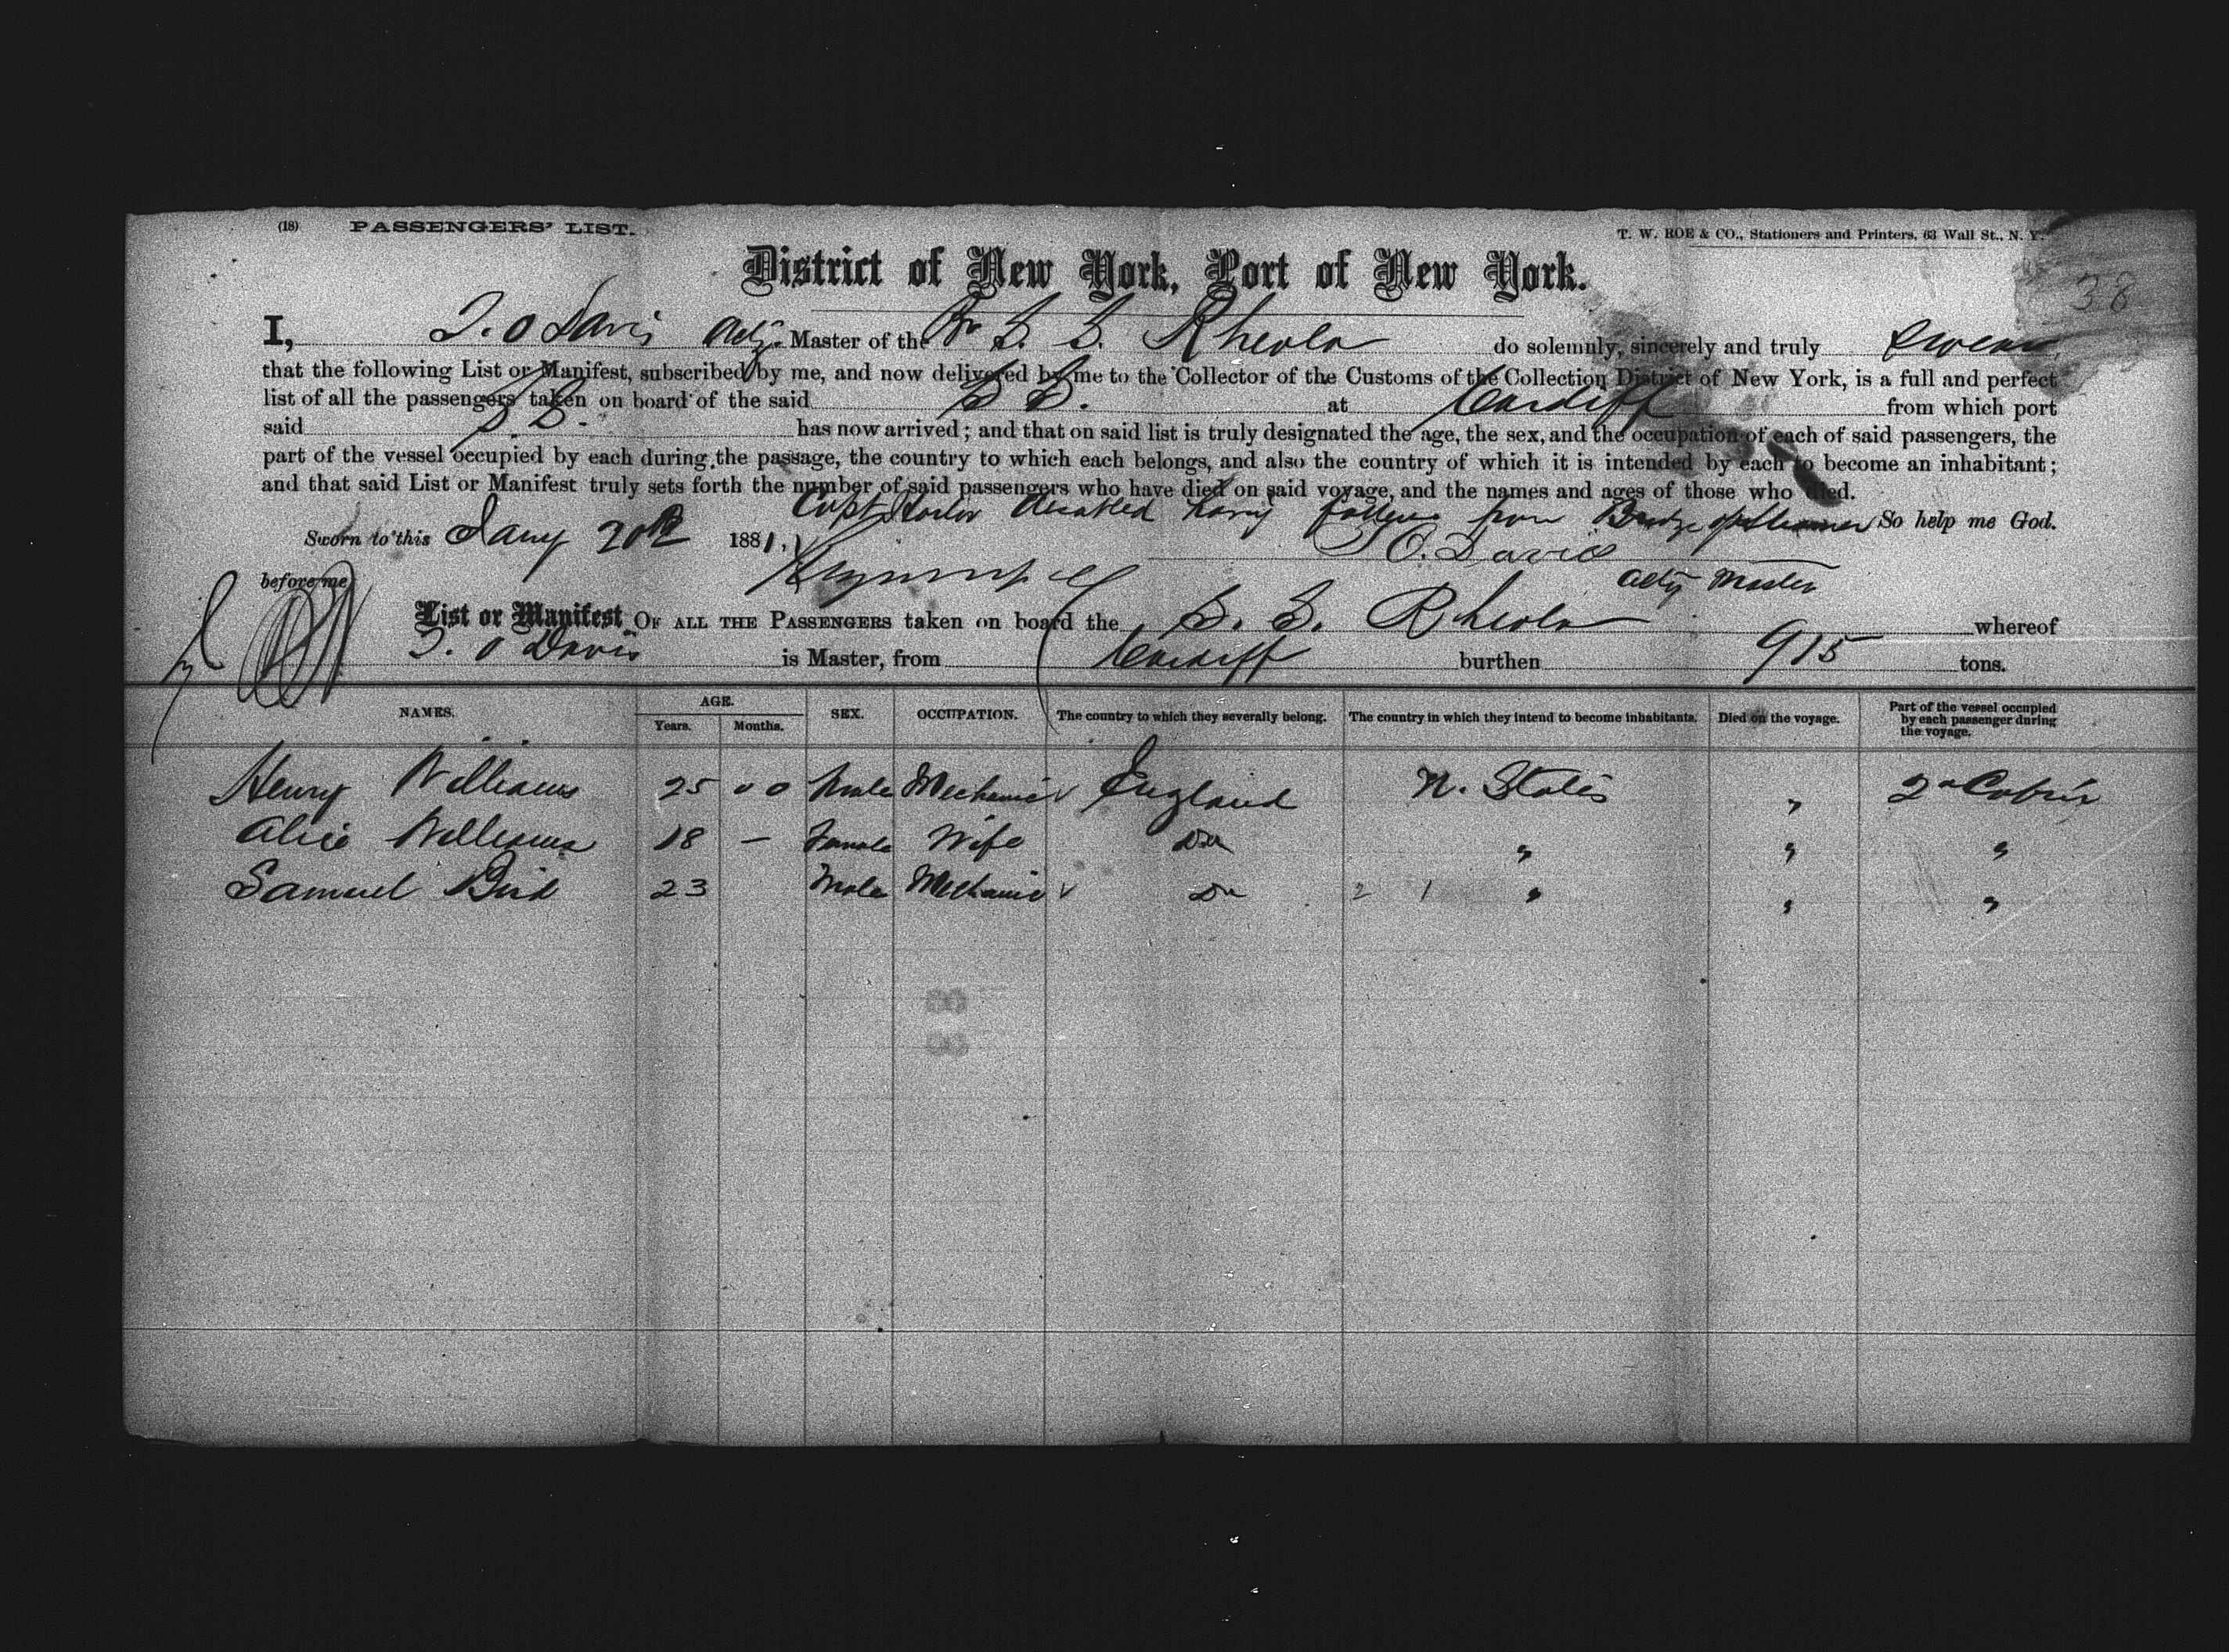 (18) PASSENGERS' LIST.
T. W. ROE & CO., Stationers and Printers, 63 Wall St., N. Y.
38
District of New York, Port of New York.
I, T. O Davis Actg. Master of the Br S. S. Rheola do solemnly, sincerely and truly swear
that the following List or Manifest, subscribed by me, and now delivered by me to the Collector of the Customs of the Collection District of New York, is a full and perfect
list of all the passengers taken on board of the said S S. at Cardiff from which port
said S. S. has now arrived; and that on said list is truly designated the age, the sex, and the occupation of each of said passengers, the
part of the vessel occupied by each during the passage, the country to which each belongs, and also the country of which it is intended by each to become an inhabitant;
and that said List or Manifest truly sets forth the number of said passengers who have died on said voyage, and the names and ages of those who died.
Capt disabled having fallen from Bridge of Steamer So help me God.
Sworn to this Jany 20th 1881.
T O. Davies
before me
Actg Master
List or Manifest OF ALL THE PASSENGERS taken on board the S. S. Rheola whereof
T. O Davis is Master, from Cardiff burthen 915 tons.
NAMES. AGE. Years. Months. SEX. OCCUPATION. The country to which they severally belong. The country in which they intend to become inhabitants. Died on the voyage. Part of the vessel occupied by each passenger during the voyage.
Henry Williams 25 00 Male Mechanic England U. States " 2d Cabin
Alice Williams 18 — Female Wife Do " " "
Samuel Bird 23 Male Mechanic Do 2 1 " " "